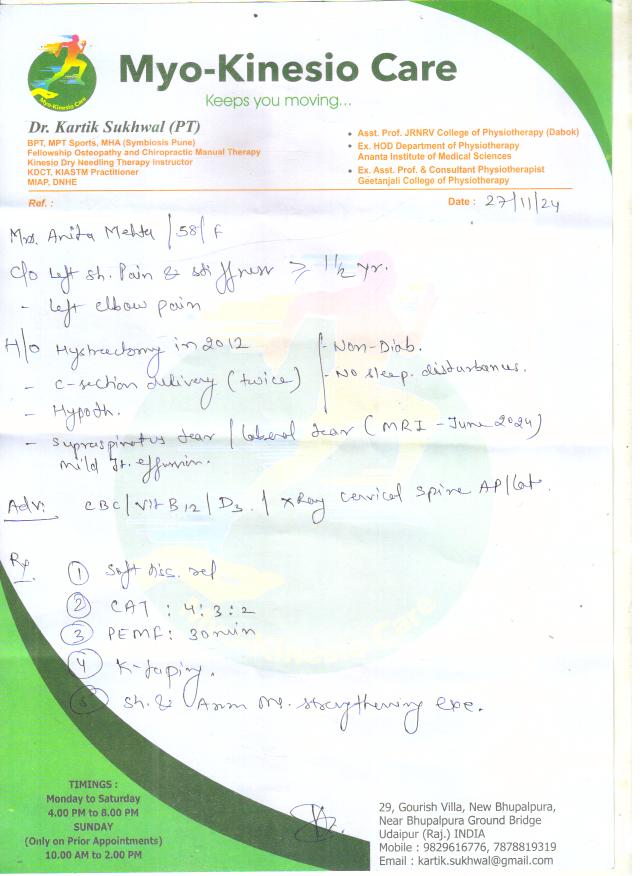 Myo-Kinesio Care
Myo-Kinesio Care
Keeps you moving...
Dr. Kartik Sukhwal (PT)
BPT, MPT Sports, MHA (Symbiosis Pune)
Fellowship Osteopathy and Chiropractic Manual Therapy
Kinesio Dry Needling Therapy Instructor
KDCT, KIASTM Practitioner
MIAP, DNHE
• Asst. Prof. JRNRV College of Physiotherapy (Dabok)
• Ex. HOD Department of Physiotherapy
Ananta Institute of Medical Sciences
• Ex. Asst. Prof. & Consultant Physiotherapist
Geetanjali College of Physiotherapy
Ref. :
Date : 27/11/24
Mrs. Anita Mehta / 58 / F
C/o Left sh. Pain & stiffness ≥ 1 1/2 yr.
- Left elbow pain
H/o Hystrectomy in 2012
- C-section delivery (twice)
- Hypoth.
- Non-Diab.
- No sleep. disturbances.
- Supraspinatus tear / labral tear (MRI - June 2024)
mild Jt. effusion.
Adv: CBC / Vit B12 / D3 / XRay Cervical Spine AP/Lat.
Rx
① Soft tiss. rel
② CAT : 4 : 3 : 2
③ PEMF : 30 min
④ K-taping.
⑤ Sh. & Arm Ms. strengthening exe.
Myo-Kinesio Care
TIMINGS :
Monday to Saturday
4.00 PM to 8.00 PM
SUNDAY
(Only on Prior Appointments)
10.00 AM to 2.00 PM
29, Gourish Villa, New Bhupalpura,
Near Bhupalpura Ground Bridge
Udaipur (Raj.) INDIA
Mobile : 9829616776, 7878819319
Email : kartik.sukhwal@gmail.com